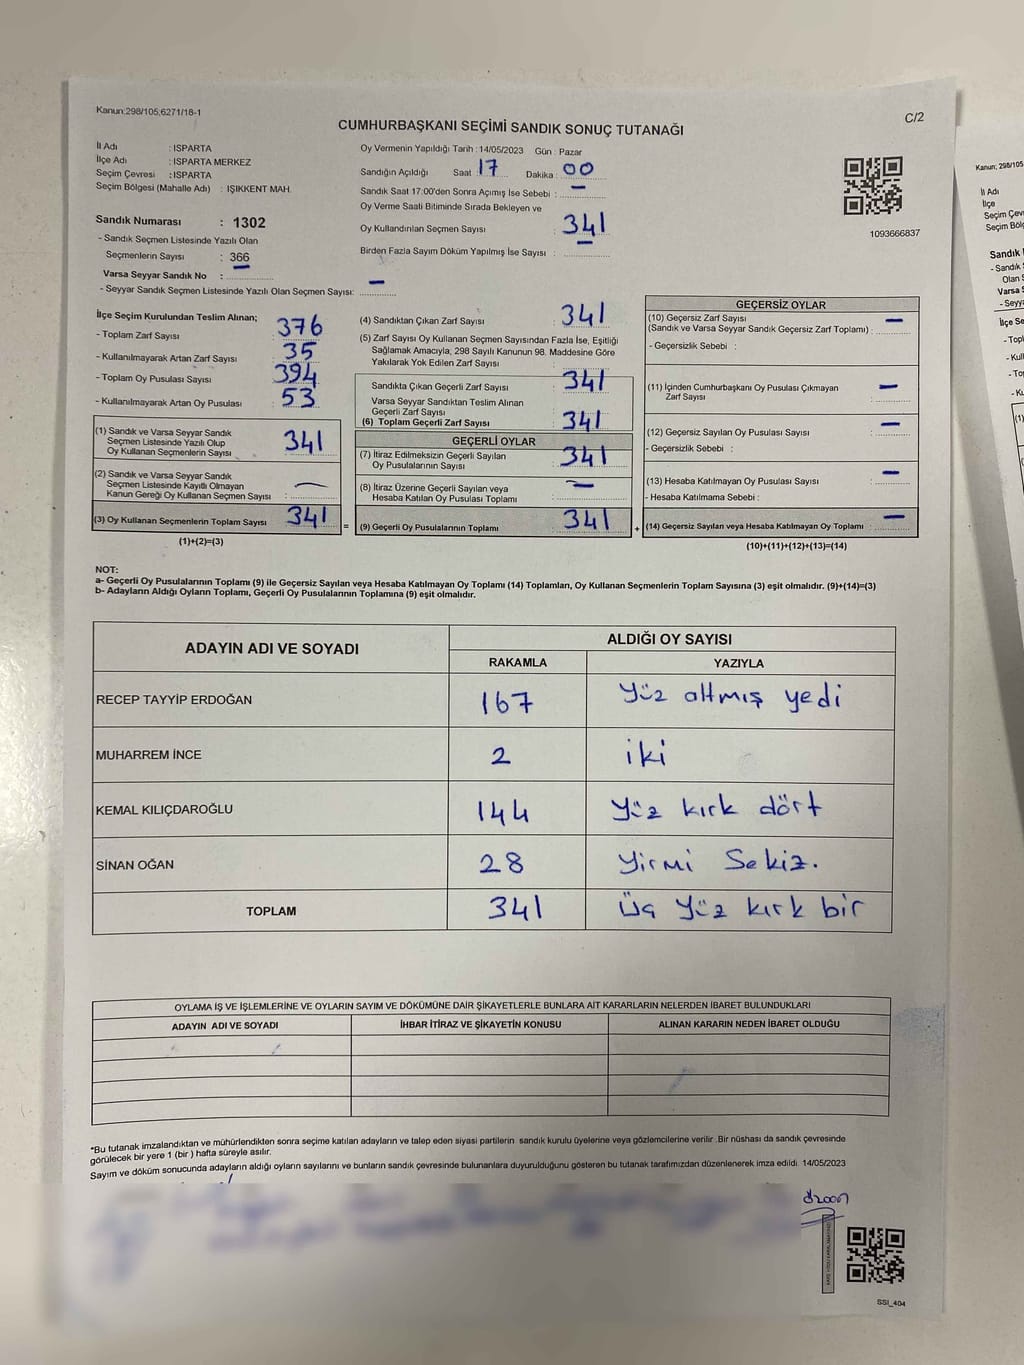 Kanun:298/105,6271/18-1
C/2
CUMHURBAŞKANI SEÇİMİ SANDIK SONUÇ TUTANAĞI
İl Adı : ISPARTA
İlçe Adı : ISPARTA MERKEZ
Seçim Çevresi : ISPARTA
Seçim Bölgesi (Mahalle Adı) : IŞIKKENT MAH.
Sandık Numarası : 1302
- Sandık Seçmen Listesinde Yazılı Olan
Seçmenlerin Sayısı : 366
Varsa Seyyar Sandık No : —
- Seyyar Sandık Seçmen Listesinde Yazılı Olan Seçmen Sayısı: —
Oy Vermenin Yapıldığı Tarih : 14/05/2023 Gün : Pazar
Sandığın Açıldığı Saat 17 Dakika : 00
Sandık Saat 17:00'den Sonra Açımış İse Sebebi : —
Oy Verme Saati Bitiminde Sırada Bekleyen ve
Oy Kullandırılan Seçmen Sayısı : 341
Birden Fazla Sayım Döküm Yapılmış İse Sayısı : —
1093666837
İlçe Seçim Kurulundan Teslim Alınan;
- Toplam Zarf Sayısı : 376
- Kullanılmayarak Artan Zarf Sayısı : 35
- Toplam Oy Pusulası Sayısı : 394
- Kullanılmayarak Artan Oy Pusulası : 53
(1) Sandık ve Varsa Seyyar Sandık
Seçmen Listesinde Yazılı Olup
Oy Kullanan Seçmenlerin Sayısı : 341
(2) Sandık ve Varsa Seyyar Sandık
Seçmen Listesinde Kayıtlı Olmayan
Kanun Gereği Oy Kullanan Seçmen Sayısı : —
(3) Oy Kullanan Seçmenlerin Toplam Sayısı : 341 =
(1)+(2)=(3)
(4) Sandıktan Çıkan Zarf Sayısı : 341
(5) Zarf Sayısı Oy Kullanan Seçmen Sayısından Fazla İse, Eşitliği
Sağlamak Amacıyla, 298 Sayılı Kanunun 98. Maddesine Göre
Yakılarak Yok Edilen Zarf Sayısı :
Sandıkta Çıkan Geçerli Zarf Sayısı : 341
Varsa Seyyar Sandıktan Teslim Alınan
Geçerli Zarf Sayısı :
(6) Toplam Geçerli Zarf Sayısı : 341
GEÇERLİ OYLAR
(7) İtiraz Edilmeksizin Geçerli Sayılan
Oy Pusulalarının Sayısı : 341
(8) İtiraz Üzerine Geçerli Sayılan veya
Hesaba Katılan Oy Pusulası Toplamı : —
(9) Geçerli Oy Pusulalarının Toplamı : 341 +
GEÇERSİZ OYLAR
(10) Geçersiz Zarf Sayısı
(Sandık ve Varsa Seyyar Sandık Geçersiz Zarf Toplamı) : —
- Geçersizlik Sebebi :
(11) İçinden Cumhurbaşkanı Oy Pusulası Çıkmayan
Zarf Sayısı : —
(12) Geçersiz Sayılan Oy Pusulası Sayısı : —
- Geçersizlik Sebebi :
(13) Hesaba Katılmayan Oy Pusulası Sayısı : —
- Hesaba Katılmama Sebebi :
(14) Geçersiz Sayılan veya Hesaba Katılmayan Oy Toplamı : —
(10)+(11)+(12)+(13)=(14)
NOT:
a- Geçerli Oy Pusulalarının Toplamı (9) ile Geçersiz Sayılan veya Hesaba Katılmayan Oy Toplamı (14) Toplamları, Oy Kullanan Seçmenlerin Toplam Sayısına (3) eşit olmalıdır. (9)+(14)=(3)
b- Adayların Aldığı Oyların Toplamı, Geçerli Oy Pusulalarının Toplamına (9) eşit olmalıdır.
ADAYIN ADI VE SOYADI
ALDIĞI OY SAYISI
RAKAMLA YAZIYLA
RECEP TAYYİP ERDOĞAN 167 Yüz altmış yedi
MUHARREM İNCE 2 iki
KEMAL KILIÇDAROĞLU 144 Yüz kırk dört
SİNAN OĞAN 28 Yirmi Sekiz.
TOPLAM 341 Üç Yüz kırk bir
OYLAMA İŞ VE İŞLEMLERİNE VE OYLARIN SAYIM VE DÖKÜMÜNE DAİR ŞİKAYETLERLE BUNLARA AİT KARARLARIN NELERDEN İBARET BULUNDUKLARI
ADAYIN ADI VE SOYADI İHBAR İTİRAZ VE ŞİKAYETİN KONUSU ALINAN KARARIN NEDEN İBARET OLDUĞU
*Bu tutanak imzalandıktan ve mühürlendikten sonra seçime katılan adayların ve talep eden siyasi partilerin sandık kurulu üyelerine veya gözlemcilerine verilir .Bir nüshası da sandık çevresinde
görülecek bir yere 1 (bir ) hafta süreyle asılır.
Sayım ve döküm sonucunda adayların aldığı oyların sayılarını ve bunların sandık çevresinde bulunanlara duyurulduğunu gösteren bu tutanak tarafımızdan düzenlenerek imza edildi. 14/05/2023
SSI_404
Kanun: 298/105
İl Adı
İlçe
Sandık
- Sandık
Varsa